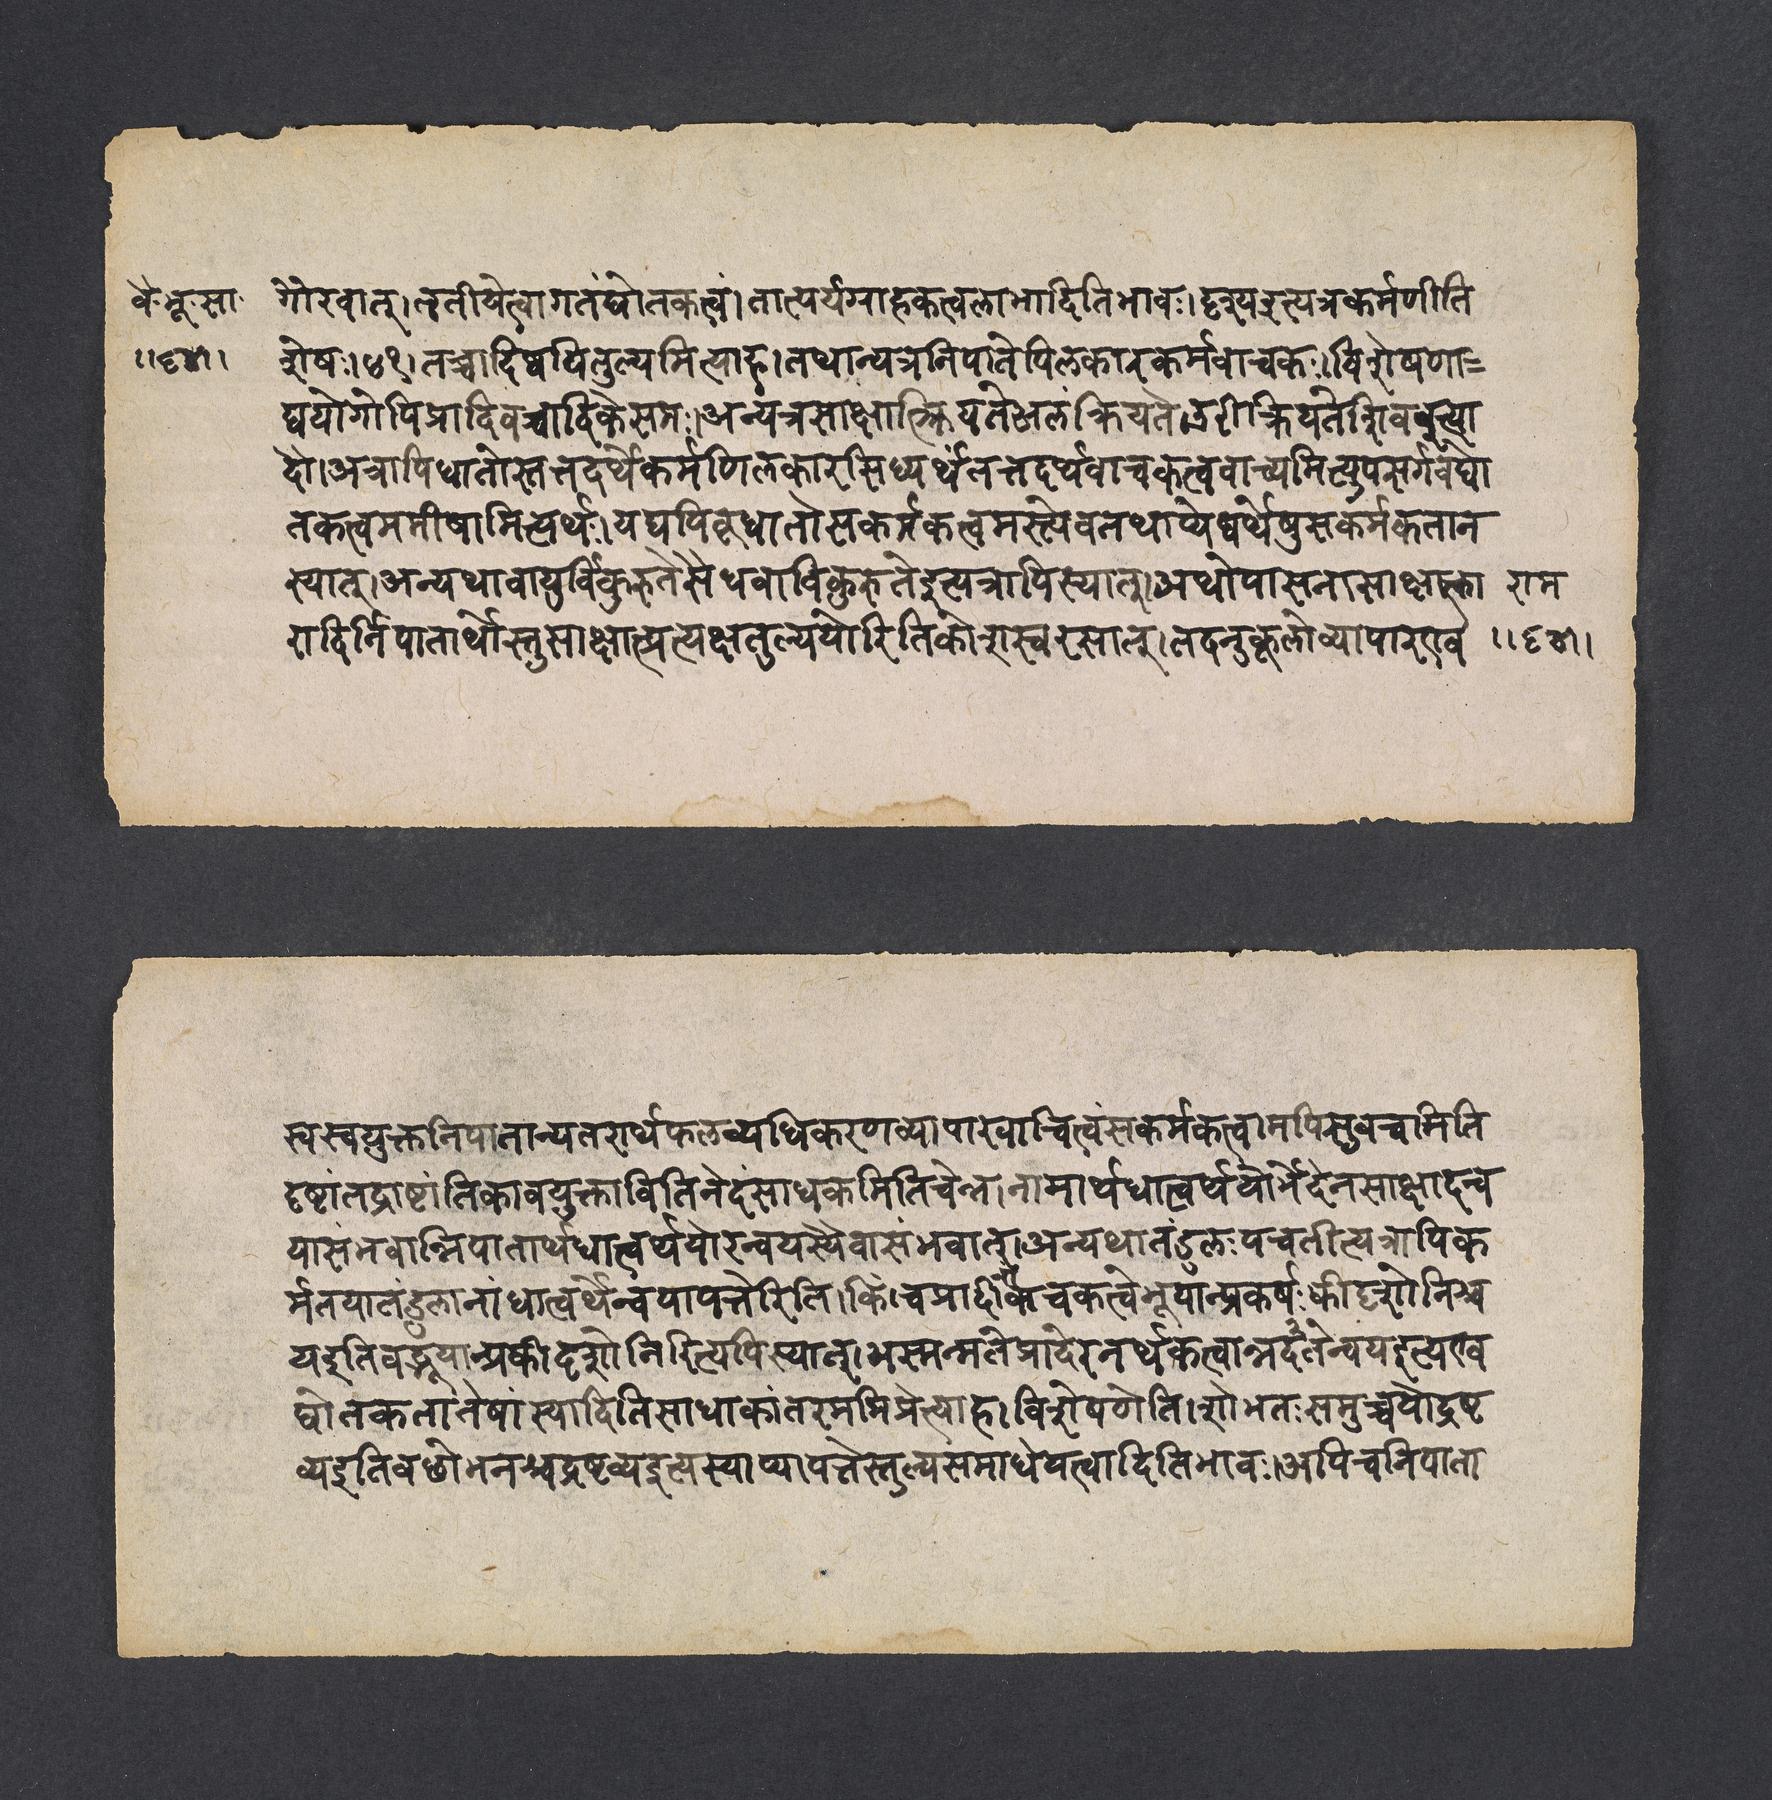 वै॰भू॰सा॰ गौरवात्। तृतीयेत्वागतंद्योतकत्वं। तात्पर्यग्राहकत्वलाभादितिभावः। दृश्यइत्यत्रकर्मणीति
शेषः। ४१। तच्चादिष्वपितुल्यमित्याह। तथान्यत्रनिपातेपिलकारकर्मवाचकः। विशेषणा=
द्ययोगोपिप्रादिवच्चादिकेसमः। अन्यत्रसाक्षात्क्रियतेअलंक्रियते उरीक्रियतेशिवइत्या
दौ। अत्रापिधातोस्तत्तदर्थेकर्मणिलकारसिध्यर्थंतत्तदर्थवाचकत्वंवाच्यमित्युपसर्गवद्द्यो
तकत्वममीषामित्यर्थः। यद्यपिकृधातोसकर्मकत्वमस्त्येवतथाप्येष्वर्थेषुसकर्मकतान
स्यात्। अन्यथावायुर्विकुरुतेसैंधवाविकुरुतेइत्यत्रापिस्यात्। अथोपासनासाक्षात्का राम
रादिर्निपातार्थोस्तुसाक्षात्प्रत्यक्षतुल्ययोरितिकोशस्वरसात्। तदनुकूलोव्यापारएव
स्वस्वयुक्तनिपातान्यतरार्थफलव्यधिकरणव्यापारवाचित्वंसकर्मकत्वमपिसुवचमिति
दृष्टांतदार्ष्टांतिकावयुक्तावितिनेदंसाधकमितिचेन्न। नामार्थधात्वर्थयोर्भेदेनसाक्षादन्व
यासंभवान्निपातार्थधात्वर्थयोरन्वयस्यैवासंभवात्। अन्यथातंडुलःपचतीत्यत्रापिक
र्मतयातंडुलानांधात्वर्थेन्वयापत्तेरिति। किंचप्रादीनांवाचकत्वेभूयान्प्रकर्षःकीदृशोनिश्च
यइतिवद्भूयान्प्रकीदृशोनिरित्यपिस्यात्। अस्मन्मतेप्रादेरनर्थकत्वान्नतदन्वयइत्यएव
द्योतकतातेषांस्यादितिसाधकांतरमभिप्रेत्याह। विशेषणेति। शोभतःसमुच्चयोद्रष्ट
व्यइतिवछोभनश्चद्रष्टव्यइत्यस्याप्यापत्तेस्तुल्यसमाधेयत्वादितिभावः। अपिचनिपाता